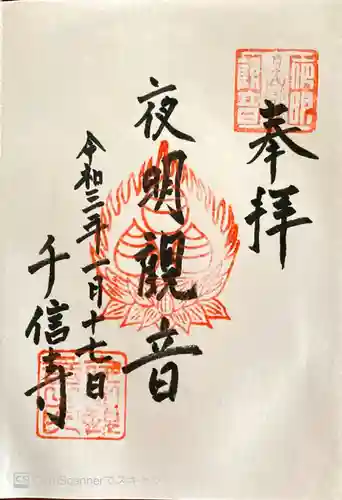 奉拝
夜明観音
令和三年一月十七日
千信寺
CS CamScannerでスキャン